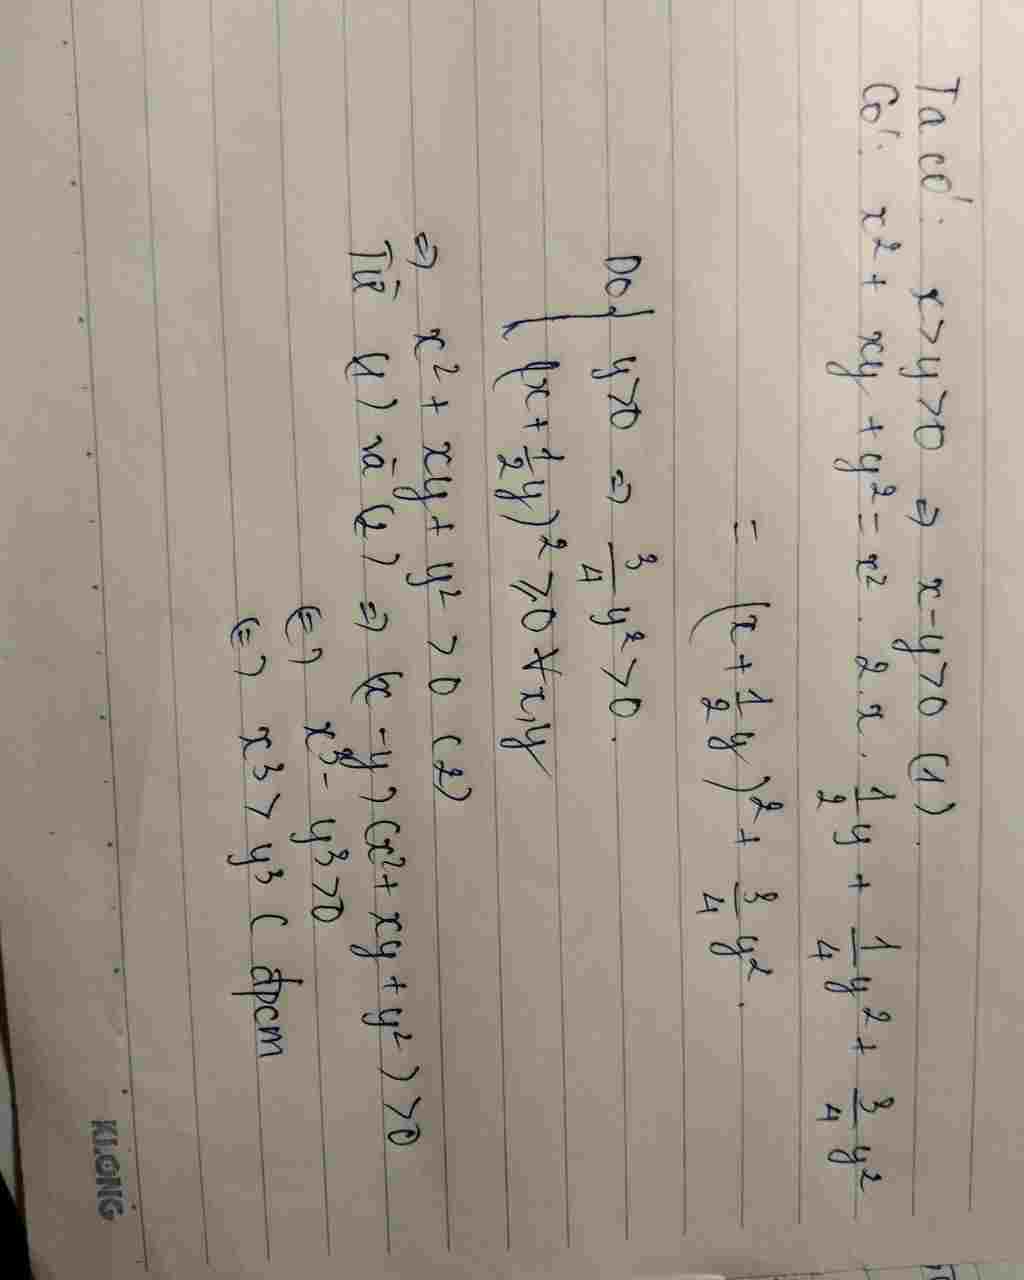 Ta có: x>y>0 => x-y>0 (1).
Có: x² + xy + y² = x² . 2.x. 1/2 y + 1/4 y² + 3/4 y²
= (x + 1/2 y)² + 3/4 y².
Do { y>0 => 3/4 y² > 0.
(x + 1/2 y)² ≥ 0 ∀x,y
=> x² + xy + y² > 0 (2)
Từ (1) và (2) => (x - y) (x² + xy + y²) > 0
(=) x³ - y³ > 0
(=) x³ > y³ ( đpcm
KLONG